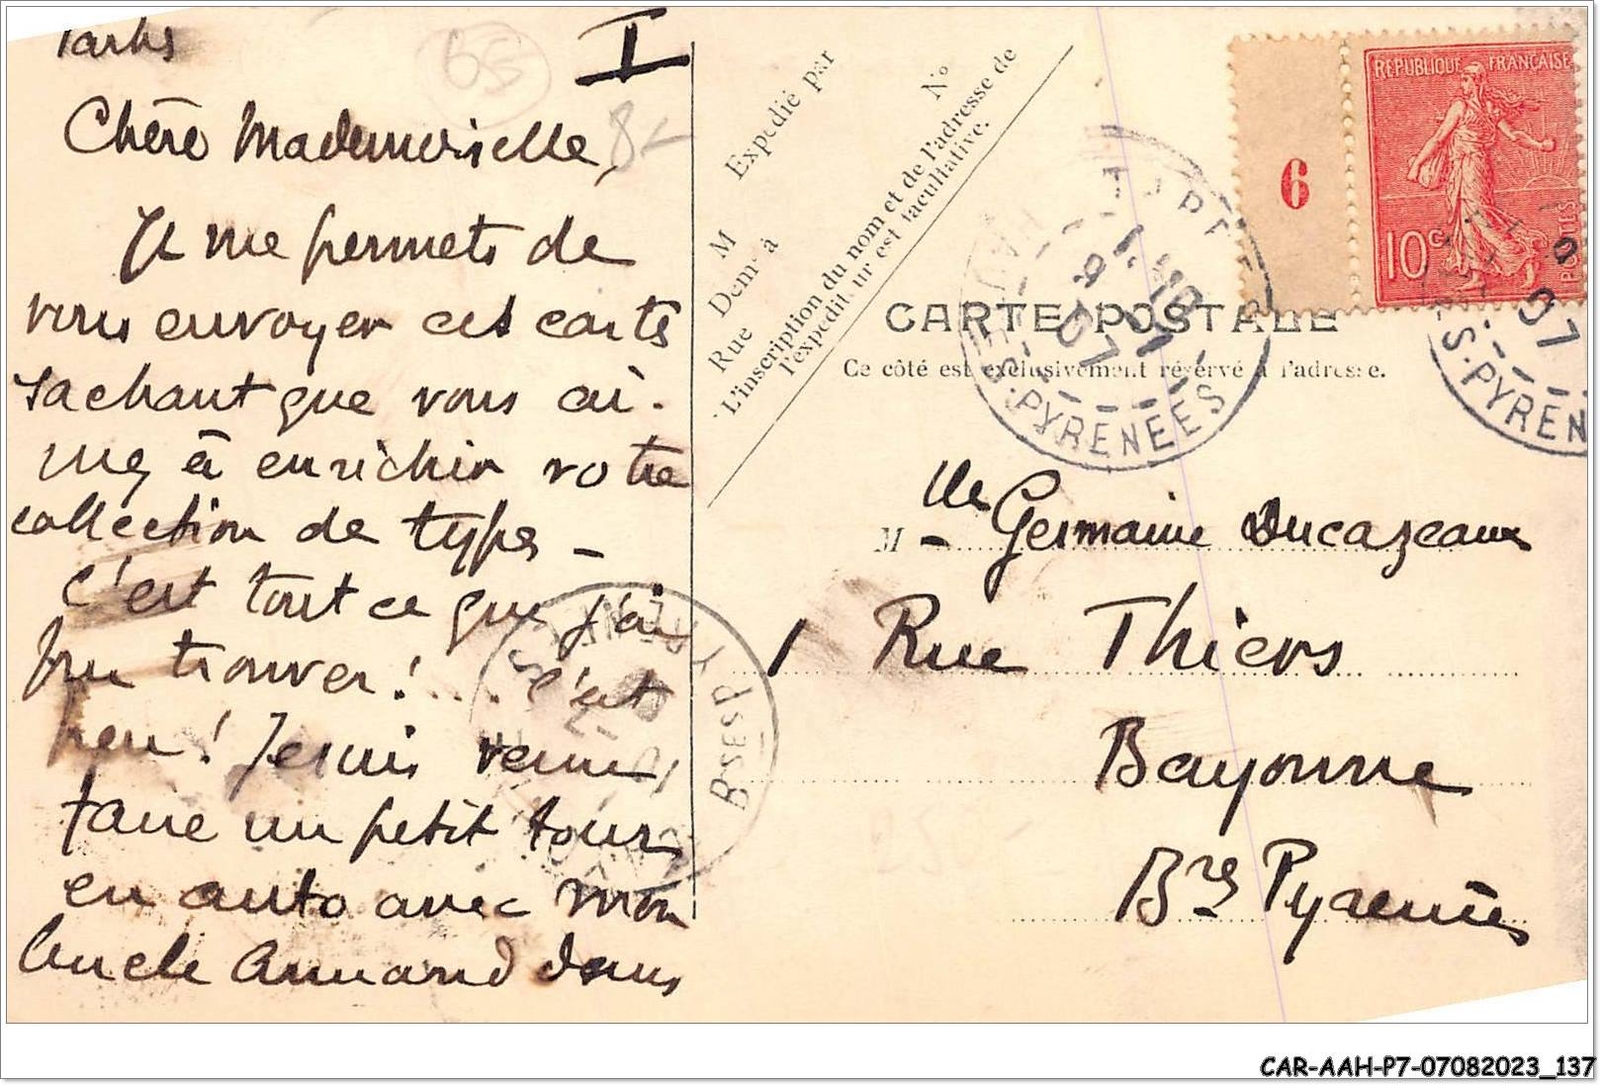 Tarbes
I
65
8-
Chère Mademoiselle,
Je me permets de
vous envoyer ces cartes
sachant que vous ai-
mez à enrichir votre
collection de types -
C'est tout ce que j'ai
pu trouver! .... C'est
peu! Je suis venu
faire un petit tour
en auto avec mon
Oncle Armand dans
M Expédié par
Dem^t à
Rue
N°
L'inscription du nom et de l'adresse de
l'expéditeur est facultative.
6
REPUBLIQUE FRANÇAISE
10c
POSTES
CARTE POSTALE
Ce côté est exclusivement réservé à l'adresse.
TARBES
9 07
Stes-PYRENEES
07
S.-PYRENE
Bses PYRENEES
M lle Germaine Ducazeaux
1 Rue Thiers
Bayonne
Bses Pyrénées
CAR-AAH-P7-07082023_137